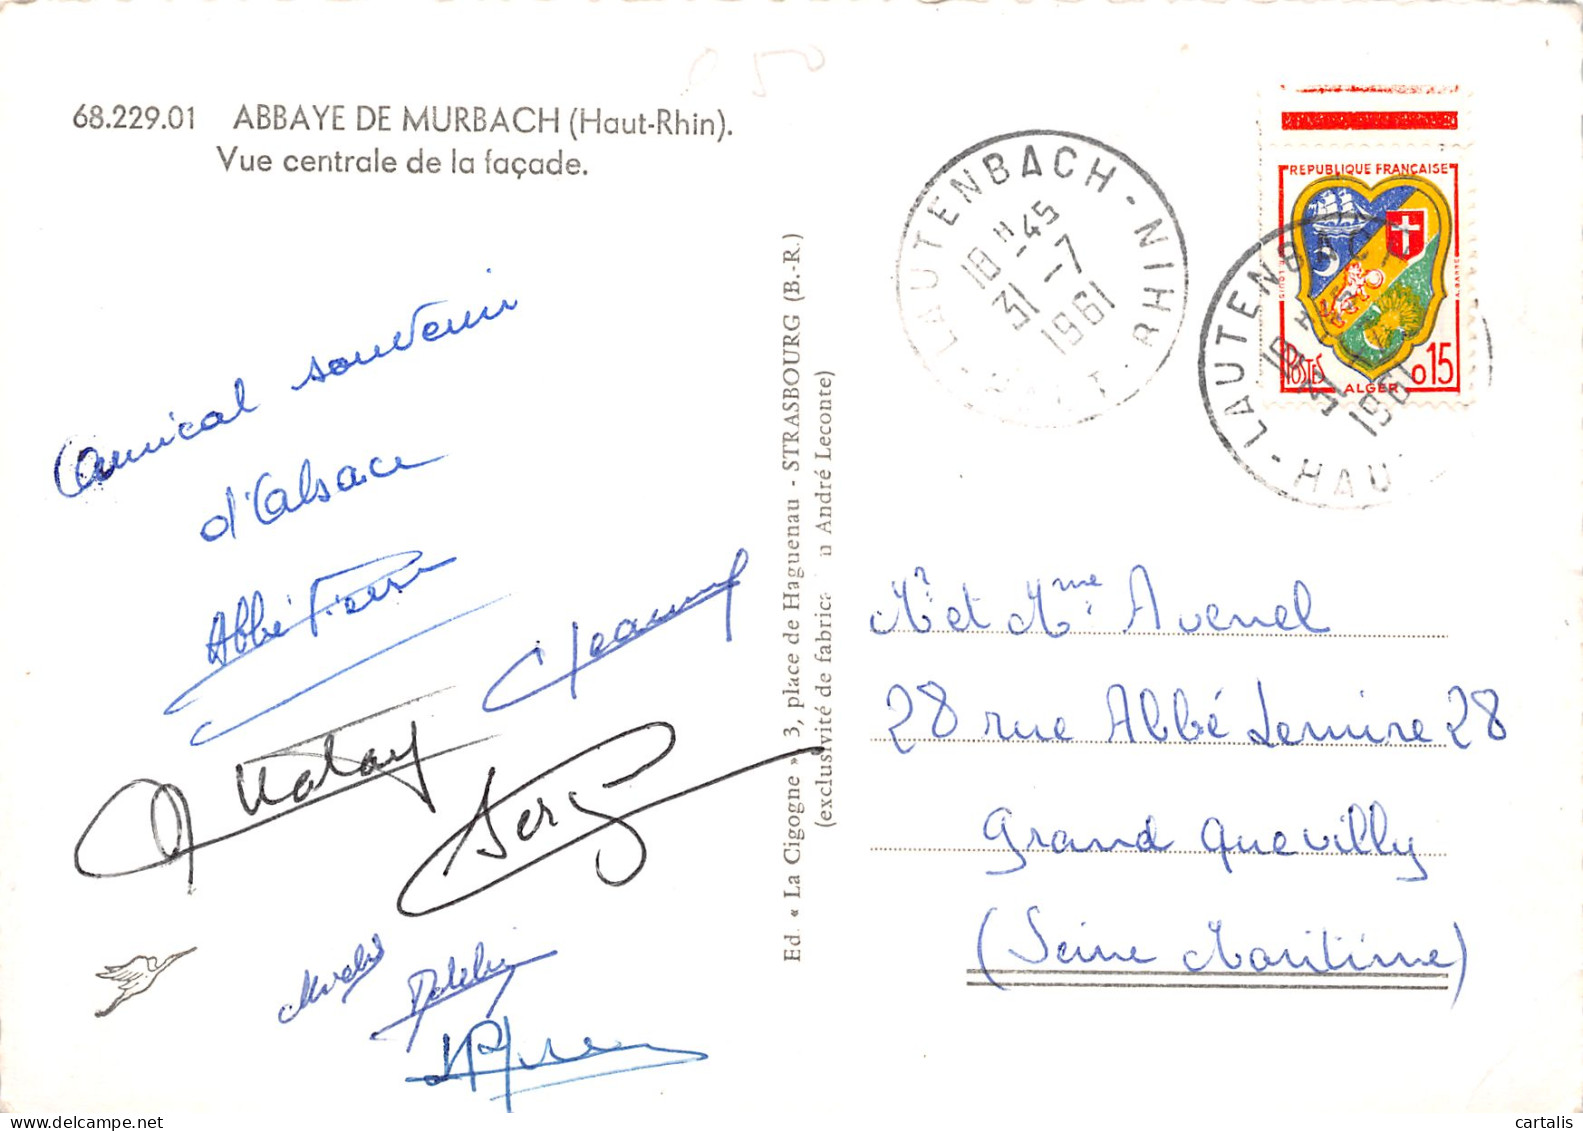 68.229.01 ABBAYE DE MURBACH (Haut-Rhin).
Vue centrale de la façade.
Amical souvenir
d'Alsace
Abbé Pierre
Ed. « La Cigogne » 3, place de Haguenau - STRASBOURG (B.-R.)
(exclusivité de fabrica André Leconte)
LAUTENBACH - HAUT - RHIN
18 H - 45
31 - 7
1961
REPUBLIQUE FRANÇAISE
POSTES
ALGER
0,15
LAUTENBACH
- HAU
18 H
31
1961
Mr et Mme Avenel
28 rue Abbé Lemire 28
Grand Quevilly
(Seine Maritime)
cartalis